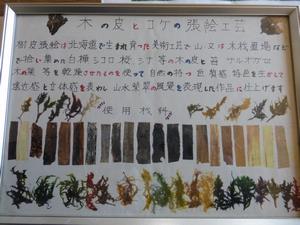 木の皮とコケの張絵工芸
樹皮張絵は北海道で生れ育った美術工芸で山又は木材置場など
で拾い集めた白樺シコロ桜シナ等の木の皮と苔サルオガセ
木の葉等を乾燥させたものを使って自然の持つ色質感特色を生かして
遠近感と立体感を表わし山水草翠の風景を表現した作品に仕上げます
使用材料